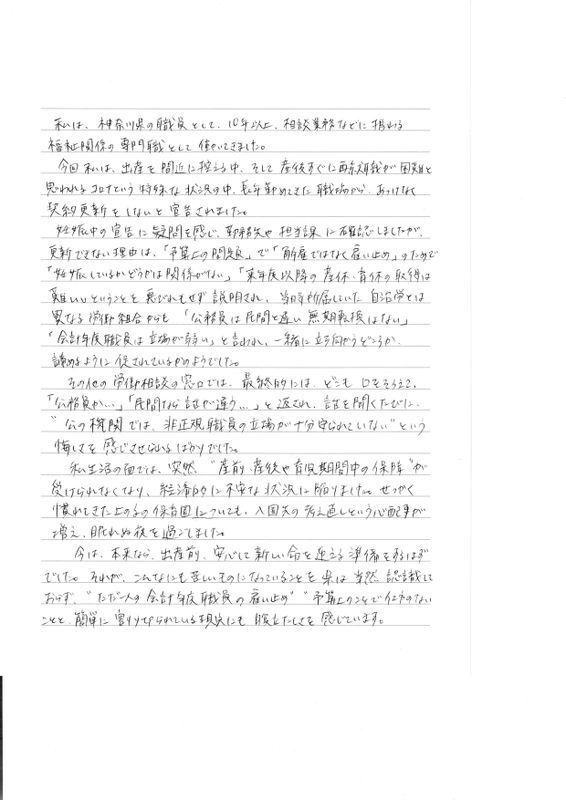 私は、神奈川県の職員として、10年以上、相談業務などに携わる
福祉関係の専門職として働いてきました。
今回私は、出産を間近に控える中、そして産後すぐに再就職が困難と
思われるコロナという特殊な状況の中、長年勤めてきた職場から、あっけなく
契約更新をしないと宣告されました。
妊娠中の宣告に疑問を感じ、勤務先や担当課に確認しましたが、
更新できない理由は、「予算上の問題」で「解雇ではなく雇い止め」のためで
「妊娠しているかどうかは関係がない」「来年度以降の産休・育休の取得は
難しいということを悪びれもせず説明され、当時所属していた自治労とは
異なる労働組合からも「公務員は民間と違い無期転換はない」
「会計年度職員は立場が弱い」と言われ、一緒に立ち向かうどころか、
諦めるように促されているかのようでした。
その他の労働相談の窓口では、最終的には、どこも口をそろえて、
「公務員か…」「民間なら話が違う…」と返され、話を聞くたびに、
"公の機関では、非正規職員の立場が十分守られていない"という
悔しさを感じさせられるばかりでした。
私生活の面では、突然、"産前産後や育児期間中の保障"が
受けられなくなり、経済的に不安な状況に陥りました。せっかく
慣れてきた上の子の保育園についても、入園先の考え直しという心配事が
増え、眠れぬ夜を過ごしました。
今は、本来なら、出産前、安心して新しい命を迎える準備をするはず
でした。それが、こんなにも苦しいものになっていることを県は当然認識して
おらず、"ただ一人の会計年度職員の雇い止め""予算上のことで仕方のない
ことと、簡単に割り切られている現状にも腹立たしさを感じています。